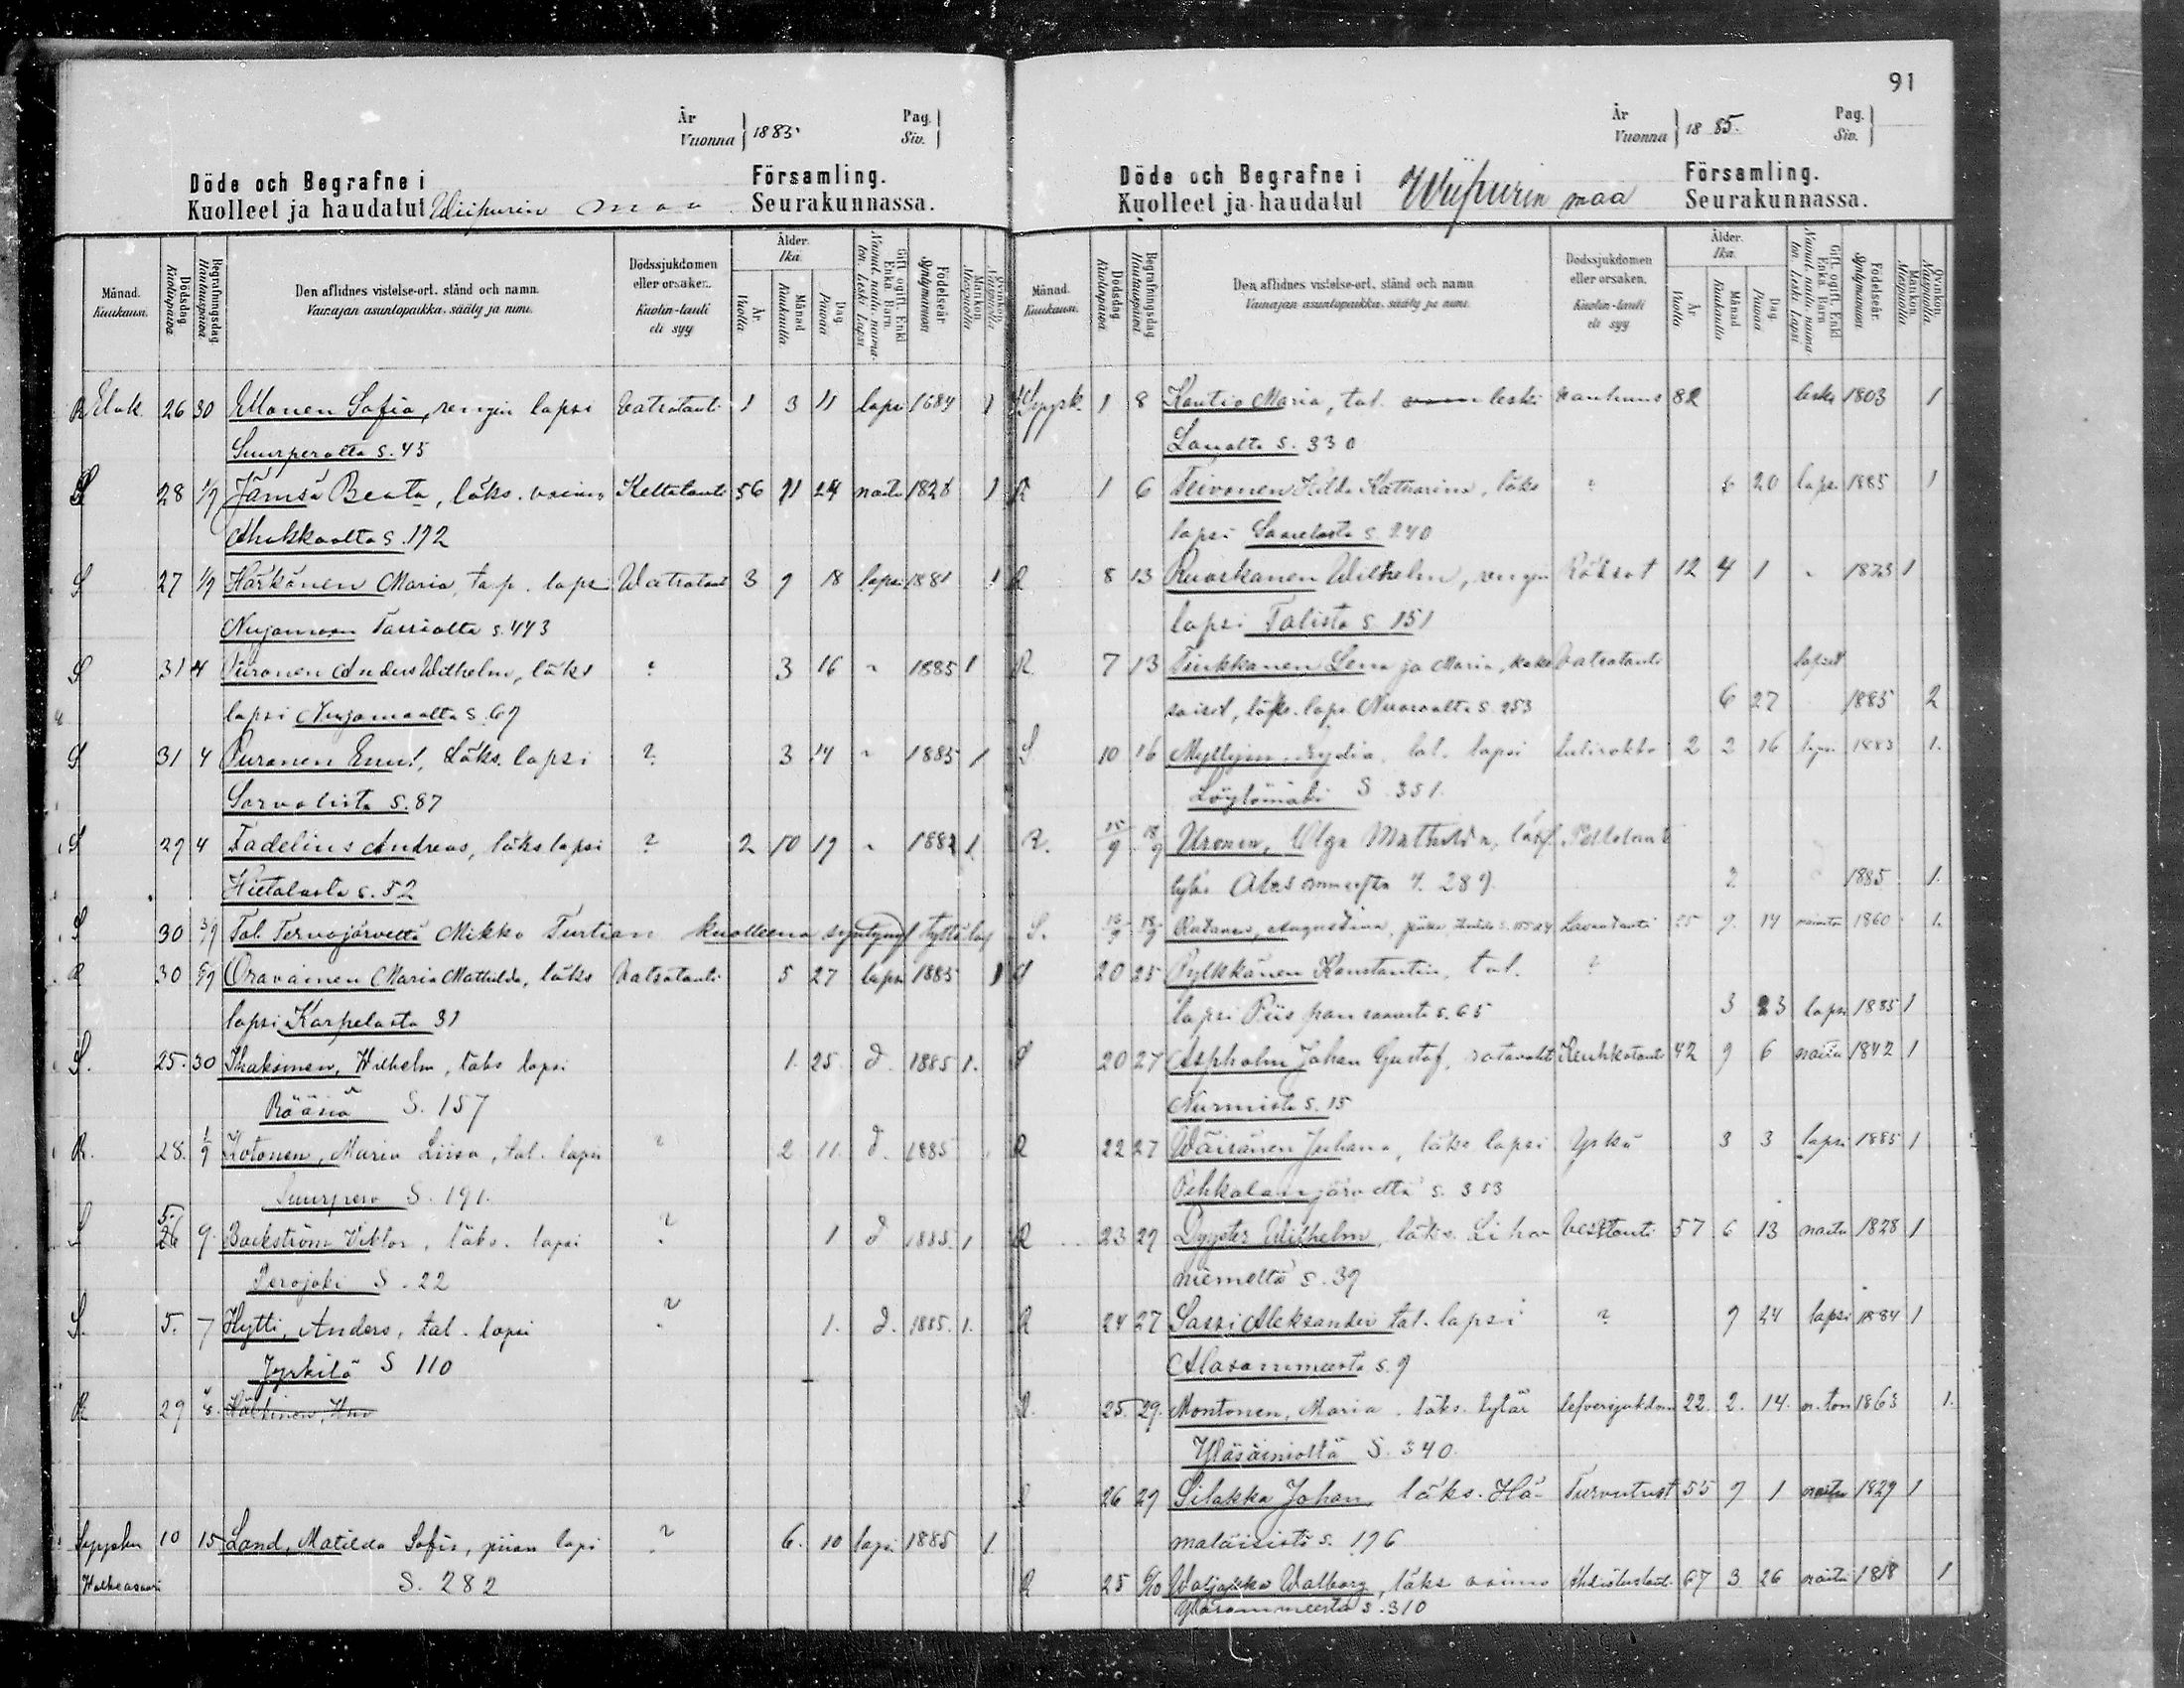 91
År
Vuonna } 1885.
Pag.
Siv.
Döde och Begrafne i
Kuolleet ja haudatut Wiipurin maa
Församling.
Seurakunnassa.
Månad.
Kuukausi.
Dödsdag
Kuolinpäivä
Begrafningsdag
Hautauspäivä
Den aflidnes vistelse-ort, stånd och namn.
Vainajan asuntopaikka, sääty ja nimi.
Dödssjukdomen
eller orsaken.
Kuolin-tauti
eli syy
Ålder.
Ikä.
År
Vuotta
Månad
Kuukautta
Dag
Päivää
Gift, ogift, Enkl.
Enka, Barn.
Nainut, naitu, naima-
ton, Leski, Lapsi
Födelseår.
Syntymävuosi
Mankön
Miespuolia
Qvinkön
Naispuolia
R Elok. 26 30 Ellonen Sofia, rengin lapsi Vatsatauti 1 3 11 lapsi 1884 1
Suurperolta s. 45
28 1/9 Jämsä Beata, läks. vaimo Keltatauti 56 11 24 naitu 1828 1
Ahokkaalta s. 172
S 27 1/9 Härkönen Maria, lapsi Watsataut 3 9 18 lapsi 1881 1
Nuijamaan Tarrialta s. 443
S 31 4 Piironen Anders Wilhelm, läks ? 3 16 " 1885 1
lapsi Nuijamaalta s. 67
S 31 4 Puranen Emil, Läks. lapsi ? 3 14 " 1885 1
Sorvalista s. 87
S 29 4 Fadelins Andreas, läks lapsi ? 2 10 19 " 1882 1
Hietalasta s. 52
S 30 3/9 Tal. Tervajärveltä Mikko Turtian kuolleena syntynyt tyttö lap
R 30 6/9 Oravainen Maria Mathilda, läks Vatsatauti 5 27 lapsi 1885 1
lapsi Karpelasta 31
S. 25. 30 Ihaksinen, Wilhelm, läks lapsi 1. 25. d. 1885 1.
Rääsiä S. 157
R. 28. 1/9 Kotonen, Maria Liisa, tal. lapsi ? 2 11. d. 1885
Suurpero S. 191.
S 5. 26 9. Backström Viktor, läks. lapsi ? 1 d 1885. 1
Perojoki S. 22
S. 5. 7 Hytti, Anders, tal. lapsi ? 1. d. 1885. 1.
Jyrkilä S 110
R 29
Syysku 10 15 Land, Matilda Sofia, piian lapsi ? 6. 10 lapsi 1885 1
S. 282
År
Vuonna } 1885.
Pag.
Siv.
Döde och Begrafne i
Kuolleet ja haudatut Wiipurin maa
Församling.
Seurakunnassa.
Månad.
Kuukausi.
Dödsdag
Kuolinpäivä
Begrafningsdag
Hautauspäivä
Den aflidnes vistelse-ort, stånd och namn
Vainajan asuntopaikka, sääty ja nimi.
Dödssjukdomen
eller orsaken.
Kuolin-tauti
eli syy
Ålder.
Ikä.
År
Vuotta
Månad
Kuukautta
Dag
Päivää
Gift, ogift, Enkl
Enka, Barn
Nainut, naitu, naima
ton, Leski, Lapsi
Födelseår.
Syntymävuosi
Mankön
Miespuolia
Qvinkön
Naispuolia
Syysk. 1 8 Kautio Maria, tal. leski vanhuus 82 leski 1803 1
s. 330
R 1 6 Teivonen Hilda Katharina, läks ? 6 20 lapsi 1885 1
lapsi Saarelasta s. 240
R 8 13 Ruoskanen Wilhelm, rengin Röksöt 12 4 1 " 1873 1
lapsi Talista s. 151
R. 7 13 Tiukkanen Lena ja Maria, kaks Vatsatauti lapset
soiset, läks. laps. Nuoraalta s. 253 6 27 1885 2
S 10 16 lapsi tulirokko 2 2 16 lapsi 1883 1.
Löytömäki S. 351.
R. 15/9 18/9 Uronen, Olga Mathilda, Pelletaut
Alasommeesta s. 289. 2 1885 1.
S. 16/9 18/9 Augustina, Lavantauti 25 9. 14 1860 1.
20 25 Pylkkänen Konstantin, tal. ?
lapsi Piispansaaresta s. 65 3 23 lapsi 1885 1
S 20 27 Aspholm Johan Gustaf, ratavaht Keuhkotaut 42 9 6 naitu 1842 1
Nurmista s. 15
R 22 27 Wäisänen Juhana, läks lapsi Yskä 3 3 lapsi 1885 1
Pihkalanjärveltä s. 353
R 23 27 Dyyster Wilhelm, läks. Liha Vesitauti 57 6 13 naitu 1828 1
niemeltä s. 39
R 24 27 Sassi Aleksander tal. lapsi ? 9 24 lapsi 1884 1
Alasommeesta s. 9
R. 25. 29. Montonen, Maria. läks. tytär lefversjukdom 22. 2. 14. n. ton 1863 1.
Yläsäiniöltä S. 340.
26 29 Silakka Johan, läks. Hä- Turvutust 55 9 1 naitu 1829 1
mäläisistä s. 176
R 25 Walborg, läks vaimo 67 3 26 naitu 1818 1
Yläsommeesta s. 310